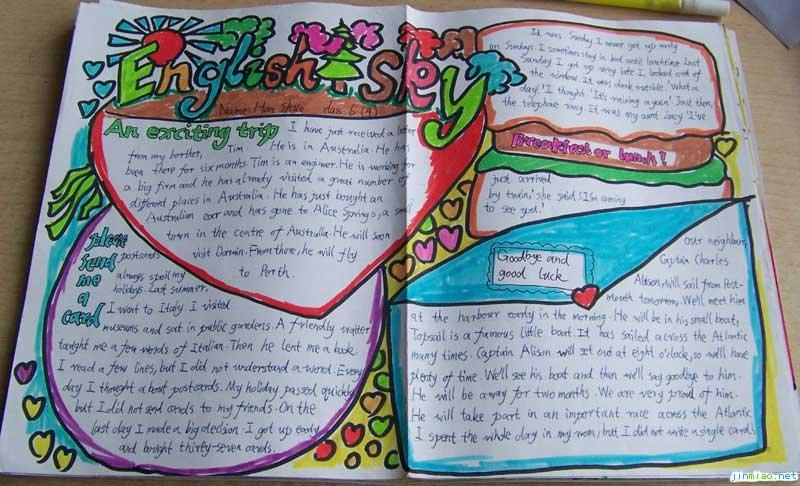 English sky
Name: Han Shuo class: 6 (4)
An exciting trip
I have just received a letter
from my borther, Tim. He is in Australia. He has
been there for six months. Tim is an engineer. He is working for
a big firm and he has already visited a great number of
different places in Australia. He has just bought an
Australian car and has gone to Alice Springs, a small
town in the centre of Australia. He will soon
visit Darwin. From there, he will fly
to Perth.
please send me a card
postcards
always spoil my
holidays. Last summer,
I want to Italy. I visited
museums and sat in public gardens. A friendly waiter
taught me a few words of Italian. Then he lent me a book.
I read a few lines, but I did not understand a word. Every
day I thought about postcards. My holiday passed quickly
but I did not send cards to my friends. On the
last day I made a big decision. I got up early
and bought thirty-seven cards.
It was Sunday. I never get up early
on Sundays. I sometimes stay in bed until lunchtime. Last
Sunday I got up very late. I looked out of
the window. It was dark outside. 'What a
day!' I thought. 'It's raining again.' Just then,
the telephone rang. It was my aunt Lucy. 'I've
Breakfast or lunch?
just arrived
by train,' she said. 'I'm coming
to see you.'
Goodbye and
good luck
Our neighbour,
Captain Charles
Alison will sail from Post-
mouth tomorrow, We'll meet him
at the harbour early in the morning. He will be in his small boat,
Topsail is a famous little boat. It has sailed across the Atlantic
many times. Captain Alison will set out at eight o'clock, so we'll have
plenty of time. We'll see his boat and then we'll say goodbye to him.
He will be away for two months. We are very proud of him.
He will take part in an important race across the Atlantic
I spent the whole day in my room, but I did not write a single card!
jinmiao.net